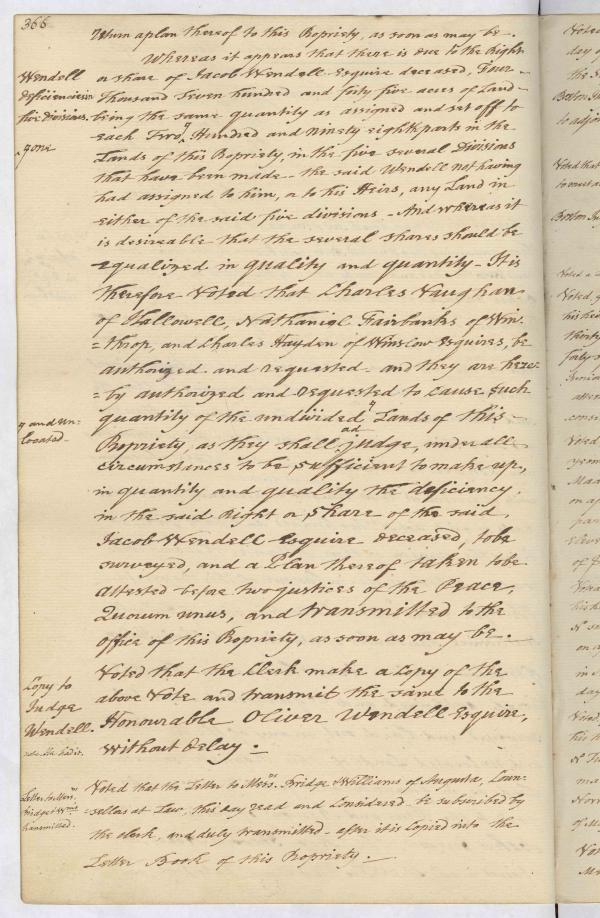 366
turn a plan thereof to this Propriety, as soon as may be.
Whereas it appears that there is due to the Right
Wendell
deficiencies in
five divisions.
or share of Jacob Wendell Esquire deceased, Four
Thousand Seven hundred and forty five acres of Land
being the same quantity as assigned and set off to
each Two " Hundred and ninety eighth parts in the
" one
Lands of this Propriety, in the five several Divisions
that have been made - the said Wendell not having
had assigned to him, or to his Heirs, any Land in
either of the said five divisions - And whereas it
is desireable that the several shares should be
equalized in quality and quantity - It is
therefore Voted that Charles Vaughan
of Hallowell, Nathaniel Fairbanks of Win-
=throp, and Charles Hayden of Winslow Esquires, be
authorized and requested - and they are here-
=by authorized and requested to cause such
quantity of the undivided " Lands of this
" and un-
located
Propriety, as they shall adjudge, under all
circumstances to be sufficient to make up,
in quantity and quality the deficiency
in the said Right or share of the said
Jacob Wendell Esquire deceased, to be
surveyed, and a Plan thereof taken to be
attested before two justices of the Peace,
Quorum unus, and transmitted to the
office of this Propriety, as soon as may be.
Copy to
Judge
Wendell.
Voted that the Clerk make a Copy of the
above Vote and transmit the same to the
Honourable Oliver Wendell Esquire,
without delay.
Letter to Mess.rs
Bridge & Wms
transmitted.
Voted that the Letter to Mess.rs Bridge & Williams of Augusta, Coun-
=sellors at Law, this day read and considered, be subscribed by
the clerk, and duly transmitted - after it is Copied into the
Letter Book of this Propriety.
Voted
day of